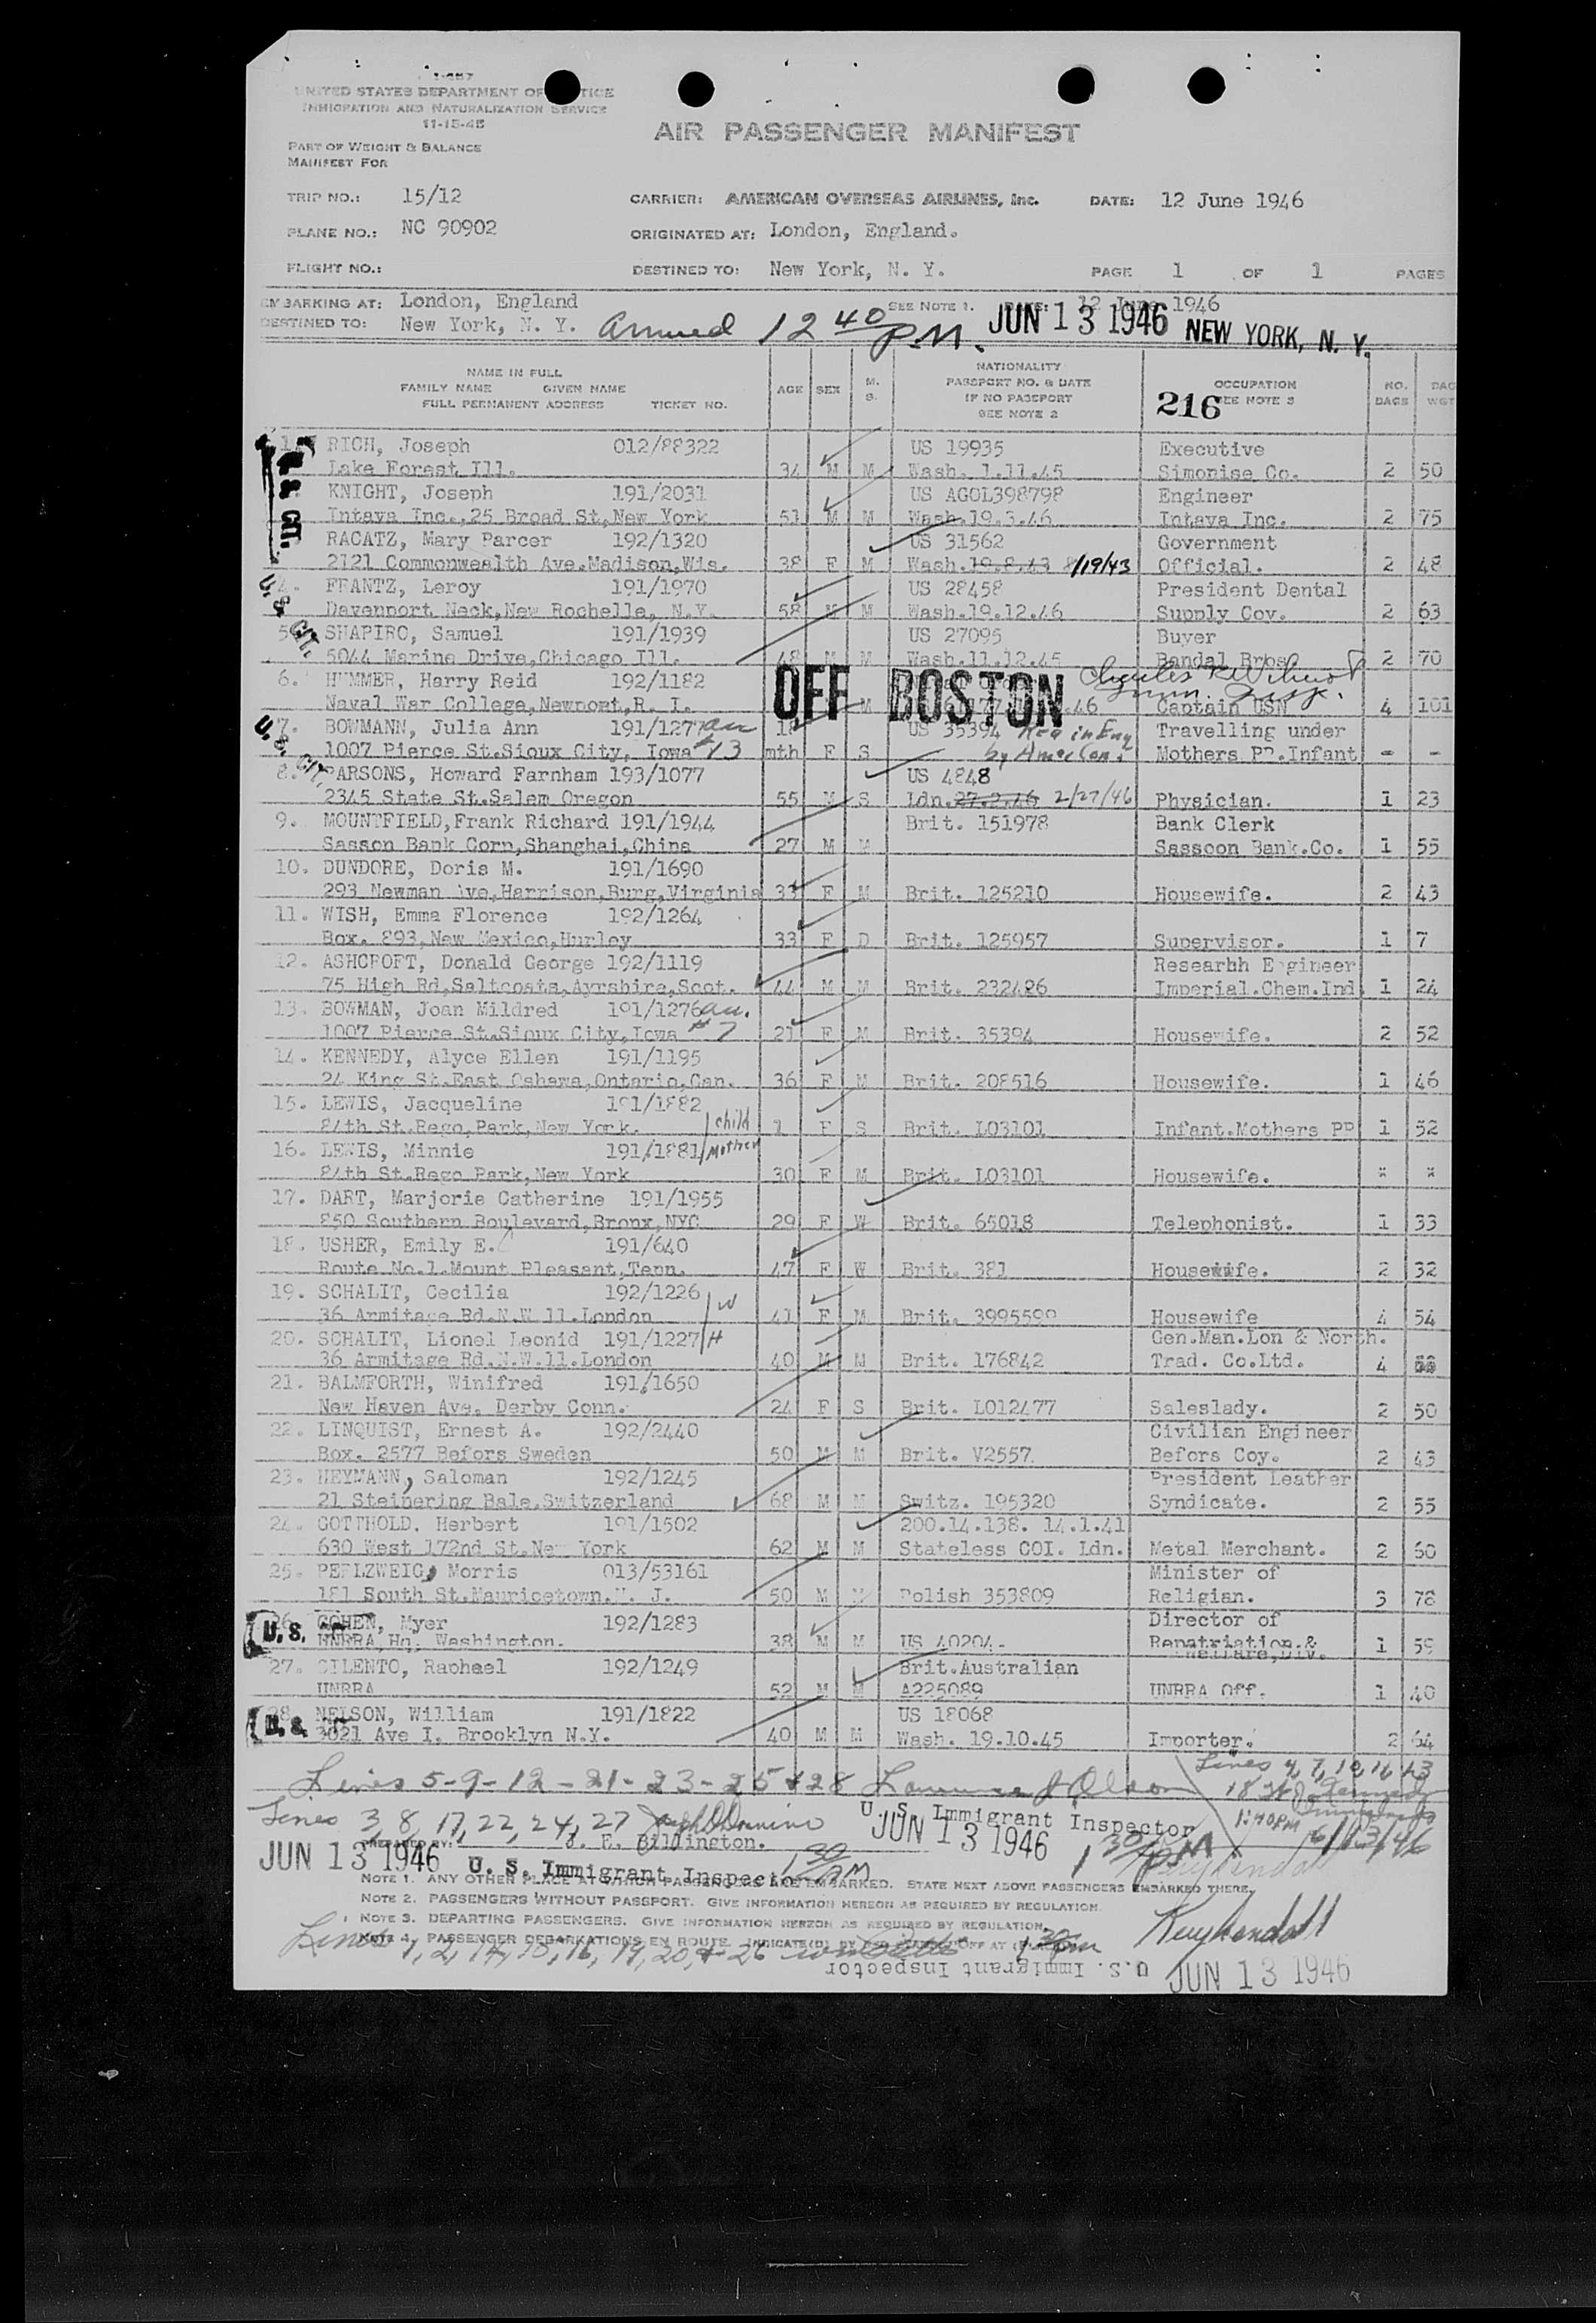 I-887
UNITED STATES DEPARTMENT OF JUSTICE
IMMIGRATION AND NATURALIZATION SERVICE
11-15-45
AIR PASSENGER MANIFEST
PART OF WEIGHT & BALANCE
MANIFEST FOR
TRIP NO.: 15/12 CARRIER: AMERICAN OVERSEAS AIRLINES, Inc. DATE: 12 June 1946
PLANE NO.: NC 90902 ORIGINATED AT: London, England.
FLIGHT NO.: DESTINED TO: New York, N. Y. PAGE 1 OF 1 PAGES
EMBARKING AT: London, England SEE NOTE 1. DATE: 12 June 1946
DESTINED TO: New York, N. Y. Arrived 12 40 P.M. JUN 13 1946 NEW YORK, N. Y.
NAME IN FULL
FAMILY NAME GIVEN NAME
FULL PERMANENT ADDRESS TICKET NO.
AGE SEX M. S.
NATIONALITY
PASSPORT NO. & DATE
IF NO PASSPORT
SEE NOTE 2
OCCUPATION
216 SEE NOTE 3
NO. BAGS BAG WGT
1. RICH, Joseph 012/88322 US 19935 Executive
Lake Forest Ill. 34 M M Wash. 1.11.45 Simonise Co. 2 50
KNIGHT, Joseph 191/2031 US AGOL398798 Engineer
Intava Inc.,25 Broad St,New York 51 M M Wash.19.3.46 Intava Inc. 2 75
RACATZ, Mary Parcer 192/1320 US 31562 Government
2121 Commonwealth Ave.Madison,Wis. 38 F M Wash.19.8.43 8/19/43 Official. 2 48
4. FRANTZ, Leroy 191/1970 US 28458 President Dental
Davenport Neck,New Rochelle, N.Y. 58 M M Wash.19.12.46 Supply Coy. 2 63
5. SHAPIRO, Samuel 191/1939 US 27095 Buyer
5044 Marine Drive,Chicago Ill. 48 M M Wash.11.12.45 Bandal Bros 2 70
6. HUMMER, Harry Reid 192/1182 OFF BOSTON
Naval War College,Newport,R. I. M Captain USN 4 101
7. BOWMANN, Julia Ann 191/1277 US 35394 Travelling under
1007 Pierce St.Sioux City, Iowa #13 mth F S by Amer Con. Mothers PP.Infant - -
8. PARSONS, Howard Farnham 193/1077 US 4848
2345 State St.Salem Oregon 55 M S Ldn.27.2.46 2/27/46 Physician. 1 23
9. MOUNTFIELD,Frank Richard 191/1944 Brit. 151978 Bank Clerk
Sasson Bank Corn,Shanghai,China 27 M M Sassoon Bank.Co. 1 55
10. DUNDORE, Doris M. 191/1690
293 Newman Ave,Harrison,Burg,Virginia 33 F M Brit. 125210 Housewife. 2 43
11. WISH, Emma Florence 192/1264
Box. 893,New Mexico,Hurley 33 F D Brit. 125957 Supervisor. 1 7
12. ASHCROFT, Donald George 192/1119 Researbh Engineer
75 High Rd,Saltcoats,Ayrshire,Scot. 44 M M Brit. 232486 Imperial.Chem.Ind 1 24
13. BOWMAN, Joan Mildred 191/1276
1007 Pierce St.Sioux City,Iowa #7 21 F M Brit. 35394 Housewife. 2 52
14. KENNEDY, Alyce Ellen 191/1195
24 King St.East Oshawa,Ontario,Can. 36 F M Brit. 208516 Housewife. 1 46
15. LEWIS, Jacqueline 191/1882
84th St.Rego,Park,New York. child 1 F S Brit. L03101 Infant.Mothers PP 1 52
16. LEWIS, Minnie 191/1881 Mother
84th St.Rego Park,New York 30 F M Brit. L03101 Housewife. " "
17. DART, Marjorie Catherine 191/1955
850 Southern Boulevard,Bronx,NYC 29 F W Brit. 65018 Telephonist. 1 33
18. USHER, Emily E. 191/640
Route No.1.Mount Pleasant,Tenn. 47 F W Brit. 381 Housewife. 2 32
19. SCHALIT, Cecilia 192/1226 W
36 Armitage Rd.N.W 11.London 41 F M Brit. 3995599 Housewife 4 54
20. SCHALIT, Lionel Leonid 191/1227 H Gen.Man.Lon & North.
36 Armitage Rd.N.W.11.London 40 M M Brit. 176842 Trad. Co.Ltd. 4
21. BALMFORTH, Winifred 191/1650
New Haven Ave. Derby Conn. 24 F S Brit. L012477 Saleslady. 2 50
22. LINQUIST, Ernest A. 192/2440 Civilian Engineer
Box. 2577 Befors Sweden 50 M M Brit. V2557 Befors Coy. 2 43
23. HEYMANN, Saloman 192/1245 President Leather
21 Steinering Bale.Switzerland 68 M M Switz. 195320 Syndicate. 2 55
24. GOTTHOLD. Herbert 191/1502 200.14.138. 14.1.41
630 West 172nd St.New York 62 M M Stateless COI. Ldn. Metal Merchant. 2 60
25. PERLZWEIG, Morris 013/53161 Minister of
181 South St.Mauricetown.N. J. 50 M M Polish 353809 Religian. 3 78
26. COHEN, Myer 192/1283 Director of
U.S. UNRRA,Hq. Washington. 38 M M US 40204. Repatriation.& Welfare,Div. 1 59
27. CILENTO, Raphael 192/1249 Brit.Australian
UNRRA 52 M M A225089 UNRRA Off. 1 40
28. NELSON, William 191/1822 US 18068
U.S. 3021 Ave I. Brooklyn N.Y. 40 M M Wash. 19.10.45 Importer. 2 64
Lines 5-9-12-21-23-25 & 28 Lawrence J Olson
Lines 4, 7, 10, 16 &13
18
Lines 3, 8, 17, 22, 24, 27
U. S. Immigrant Inspector
PREPARED BY: J. E. Billington.
JUN 13 1946 1 30 PM 6/13/46
JUN 13 1946 U. S. Immigrant Inspector 1 30 PM
NOTE 1. ANY OTHER PLACE AT WHICH PASSENGERS ARE EMBARKED. STATE NEXT ABOVE PASSENGERS EMBARKED THERE.
NOTE 2. PASSENGERS WITHOUT PASSPORT. GIVE INFORMATION HEREON AS REQUIRED BY REGULATION.
NOTE 3. DEPARTING PASSENGERS. GIVE INFORMATION HEREON AS REQUIRED BY REGULATION.
NOTE 4. PASSENGER DEBARKATIONS EN ROUTE. INDICATE(D) BY
Lines 1, 2, 14, 15, 16, 19, 20, & 26 Kuykendall
U.S. Immigrant Inspector JUN 13 1946